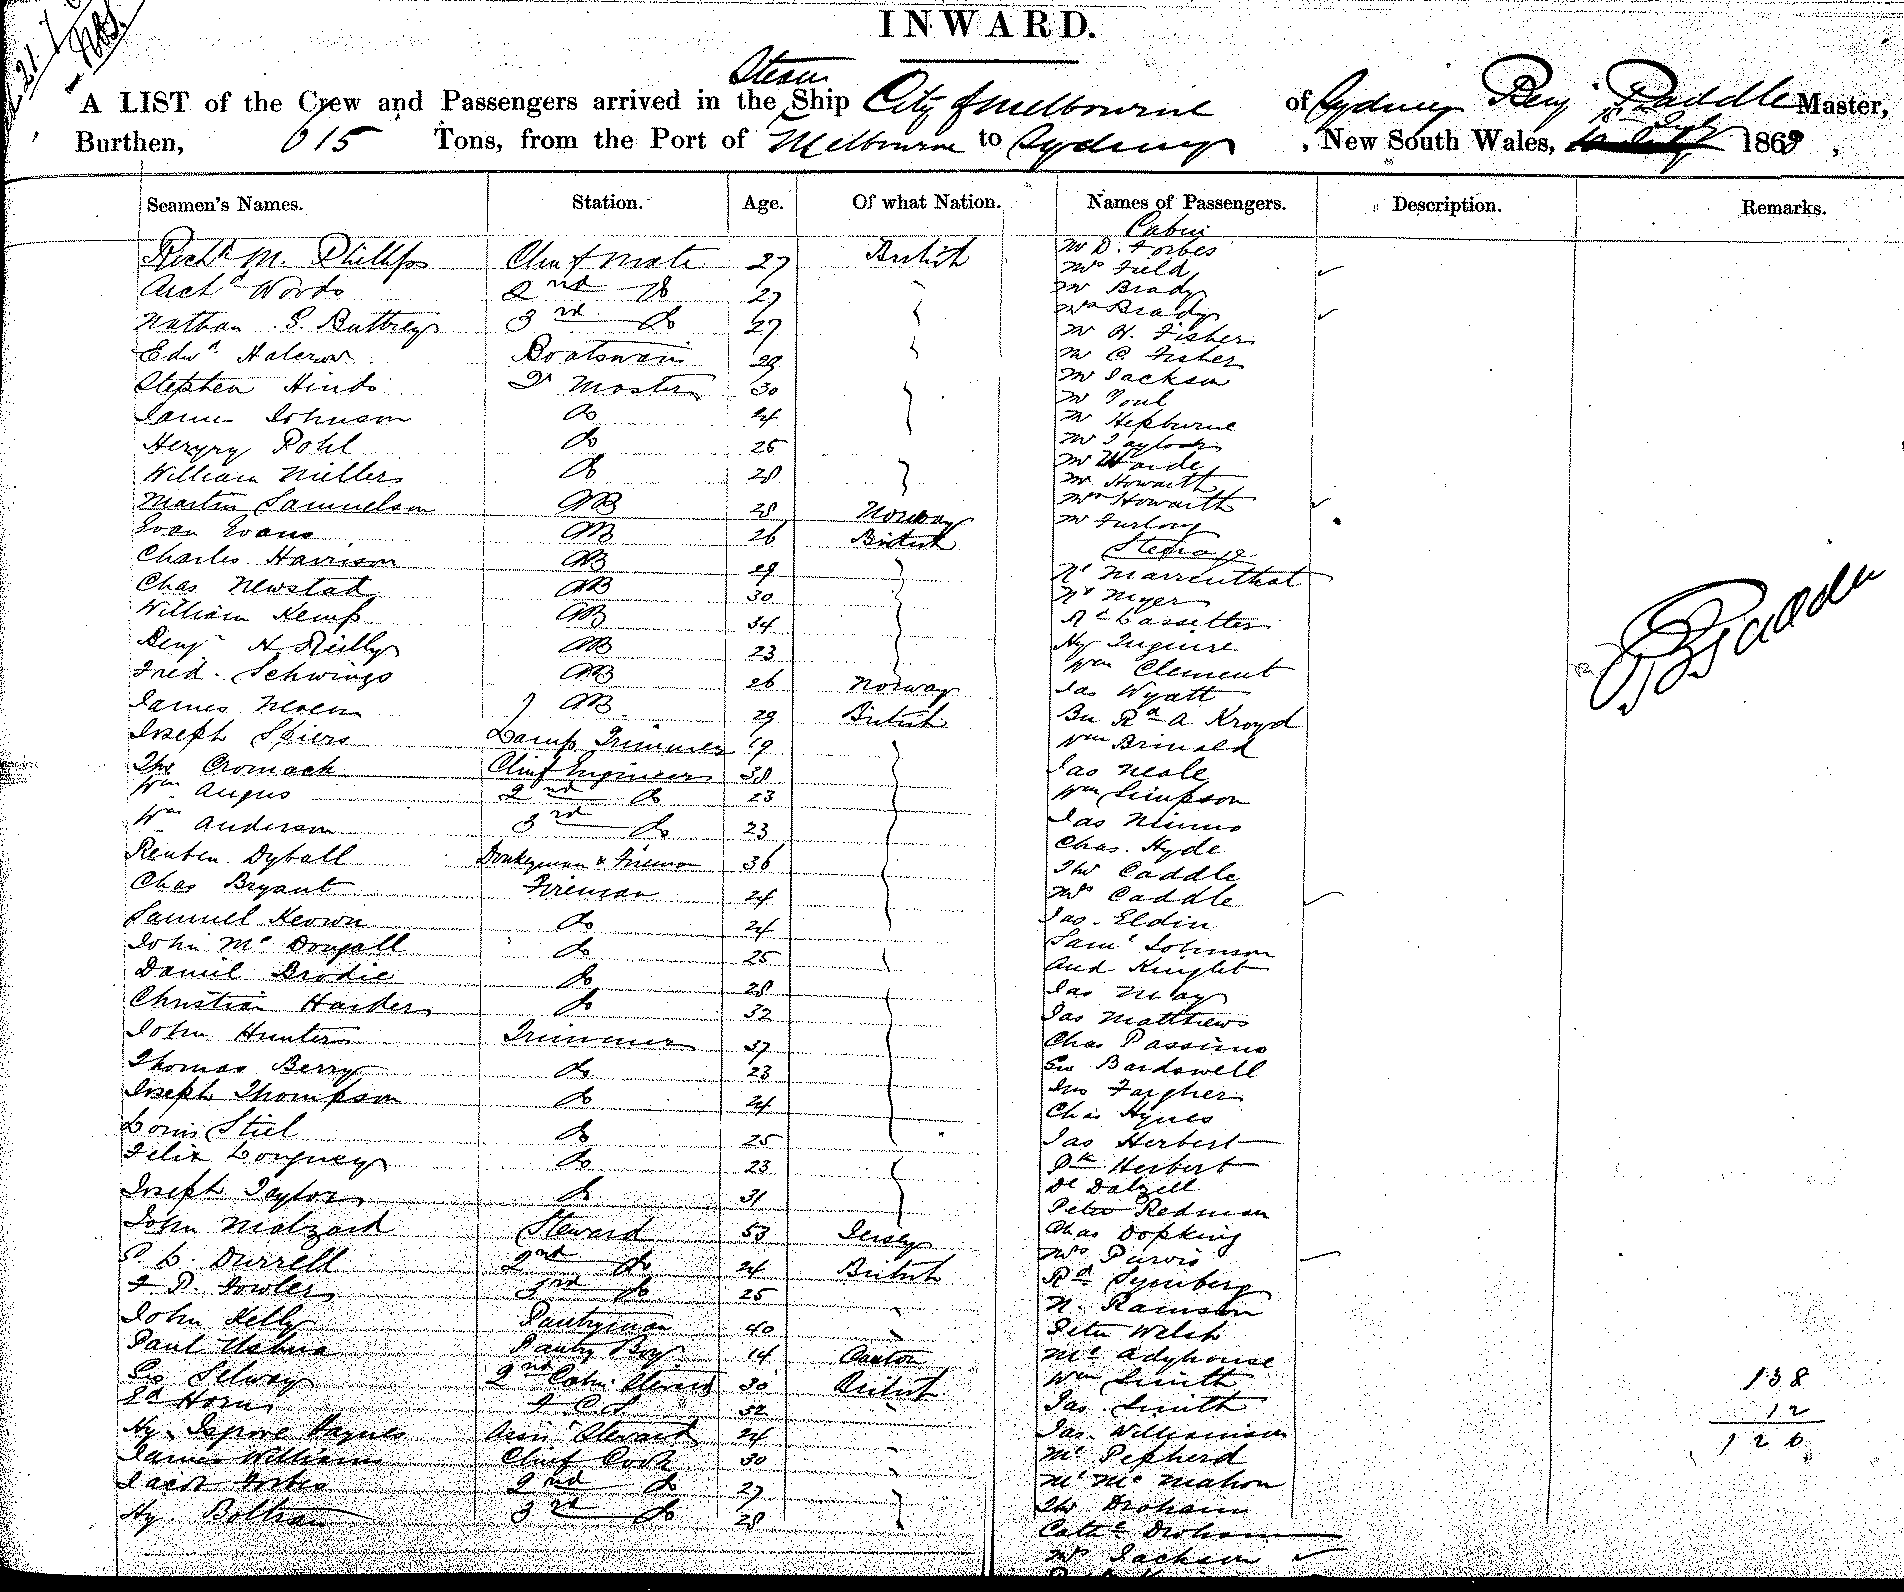 INWARD.
Steam
A LIST of the Crew and Passengers arrived in the Ship City of Melbourne of Sydney Benj Paddle Master,
Burthen, 615 Tons, from the Port of Melbourne to Sydney, New South Wales, 1869,
Seamen's Names. Station. Age. Of what Nation. Names of Passengers. Description. Remarks.
Cabin
Richd M. Phillips Chief Mate 27 British Mr D. Forbes
Mrs Field
Archd Words 2nd Do 27 Mr Brady
Mrs Brady
Nathan S. Buttrey 3rd Do 27 Mr H. Fisher
Edwd Halcrow Boatswain 29 Mr C. Fisher
Mr Jackson
Stephen Hinds Qr Master 30 Mr Youl
James Johnson Do 24 Mr Hepburne
Henry Pohl Do 25 Mr Taylor
William Millers Do 28 Mr Howarth
Martin Samuelson AB 28 Norway Mrs Howarth
Evan Evans AB 26 British Mr Furlong
Steerage
Charles Harrison AB 29 Mr Marrenthal
Chas Newstad AB 30 Mr Myer
William Kemp AB 34 Rd Lassetter
Benj H Reilly AB 23 Hy Inguire
Fred. Schwings AB 26 Norway Wm Clement
Jas Wyatt
James Neven AB 29 British Rd A Kroyd
Joseph Spiers Lamp Trimmer 19 Wm Brinald
Cromack Chief Engineer 38 Jas Neale
Wm Angus 2nd Do 23 Wm Simpson
Wm Anderson 3rd Do 23 Jas Nimmo
Reuben Dyball Donkeyman & Fireman 36 Chas. Hyde
Thos Caddle
Chas Bryant Fireman 24 Mrs Caddle
Samuel Keown Do 24 Jas. Eldin
John McDougall Do 25 Saml Johnson
Daniel Brodie Do 28 And Knight
Jas May
Christian Harder Do 32 Jas Matthews
John Hunter Trimmer 37 Chas Passimo
Thomas Berry Do 23 Geo Bardswell
Joseph Thompson Do 24 Jno Fargher
Chas Hynes
Louis Stiel Do 25 Jas Herbert
Felix Longuey Do 23 Herbert
Joseph Taylor Do 31 Dl Dalzell
Peter Redman
John Malzard Steward 53 Jersey Chas Dopking
P. L. Durrell 2nd Do 24 British Mrs Purvis
F P. Fowler 3rd Do 25 Rd Symberg
N. Ramson
John Kelly Pantryman 40 Peter Welsh
Paul Pantry Boy 14 Canton Mr Adyhouse
Geo Selway 2nd Cabin Steward 30 British Wm Smith 138
Ed Horn F. C. S. 32 Jas. Smith 12
Hy Haynes Assis Steward 24 Jas. Williamson 126
James Williams Chief Cook 30 Mr Pepherd
Jacob Forbes 2nd Do 27 Mr McMahon
Hy. Boltran 3rd Do 28 Thos Droham
Cathe Droham
Mrs Jackson